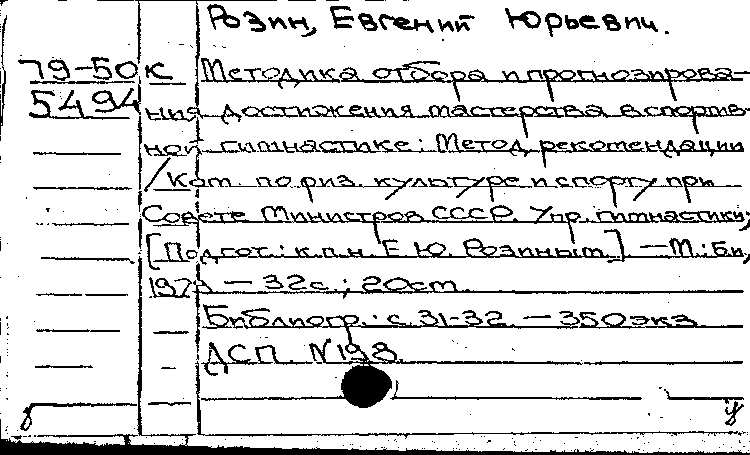 Розин, Евгений Юрьевич.
79-50к Методика отбора и прогнозирова-
5494 ния достижения мастерства в спортив-
ной гимнастике: Метод. рекомендации
/Ком. по физ. культуре и спорту при
Совете Министров СССР. Упр. гимнастики;
[Подгот.: к.п.н. Е.Ю. Розиным] — М.: Б.и.,
1979 — 32с.; 20см.
Библиогр.: с. 31-32. — 350экз.
ДСП. N198.